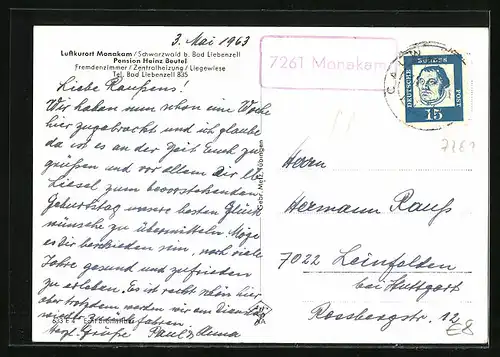 3. Mai 1963
Luftkurort Monakam / Schwarzwald b. Bad Liebenzell
Pension Heinz Beutel
Fremdenzimmer / Zentralheizung / Liegewiese
Tel. Bad Liebenzell 835
Liebe Raußens!
Wir haben nun schon eine Woche
hier zugebracht und ich glaube
da ist es an der Zeit Euch zu
grüßen und vor allem Dir lb.
Liesel zum bevorstehenden
Geburtstag unsere besten Glück
wünsche zu übermitteln. Möge
es Dir beschieden sein, noch viele
Jahre gesund und zufrieden
zu erleben. Es ist recht schön hier
aber trotzdem werden wir am
wieder zurückfahren
Herzl. Grüße Paul & Anna
Gebr. Metz, Tübingen
7261 Monakam
CALW
DEUTSCHE BUNDESPOST
15
7261
Herrn
Hermann Rauß
7022 Leinfelden
bei Stuttgart
Rossbergstr. 12
E8